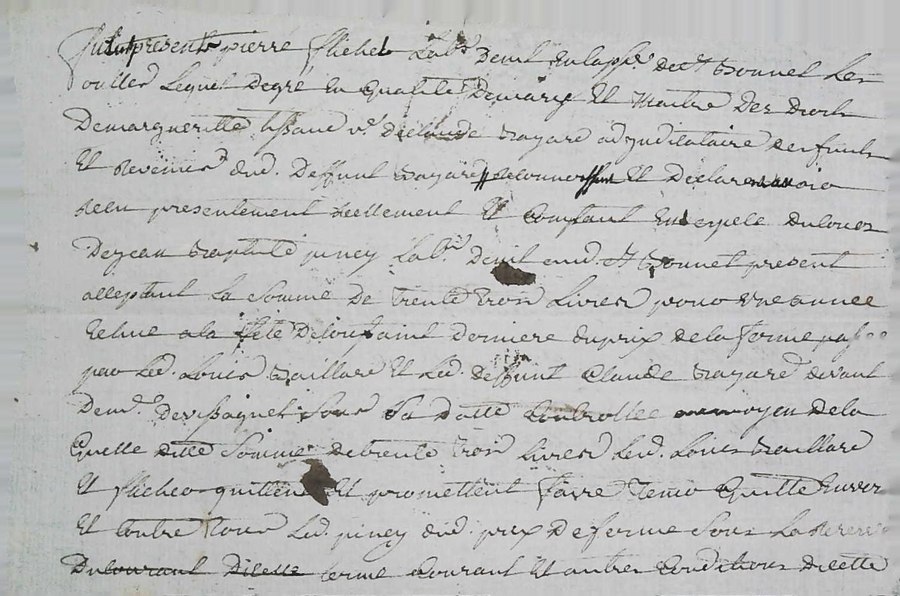 present pierre flichet Lab.r Demt en la pss.e de st Bonnet Les
oulles Lequel Degré en qualité De mary Et Maitre Des Droits
De margueritte v.e De claude Bayard adjudicataire des fruits
Et Revenus dud. Deffunt Bayard Et Declare avoir
Reçu presentement Reellement Et Comptant En espece du cours
De jean Baptiste piney Lab.r Demt aud. st Bonnet present
acceptant La Somme De trente trois Livres pour une année
Echue a la fete De Toussaint Derniere du prix de la ferme
par Led. Louis Baillard Et Led. deffunt Claude Bayard devant
De m.e Devissaguet Sous Sa Datte Controllée moyen de la
Quelle ditte Somme de trente trois Livres Led. Louis Baillard
Et flichet quittent Et promettent faire tenir Quitte Envers
Et Contre tous Led. piney dud. prix De ferme Sous La
Du courant Dicelle ferme Courant Et autres Conditions Dicelle